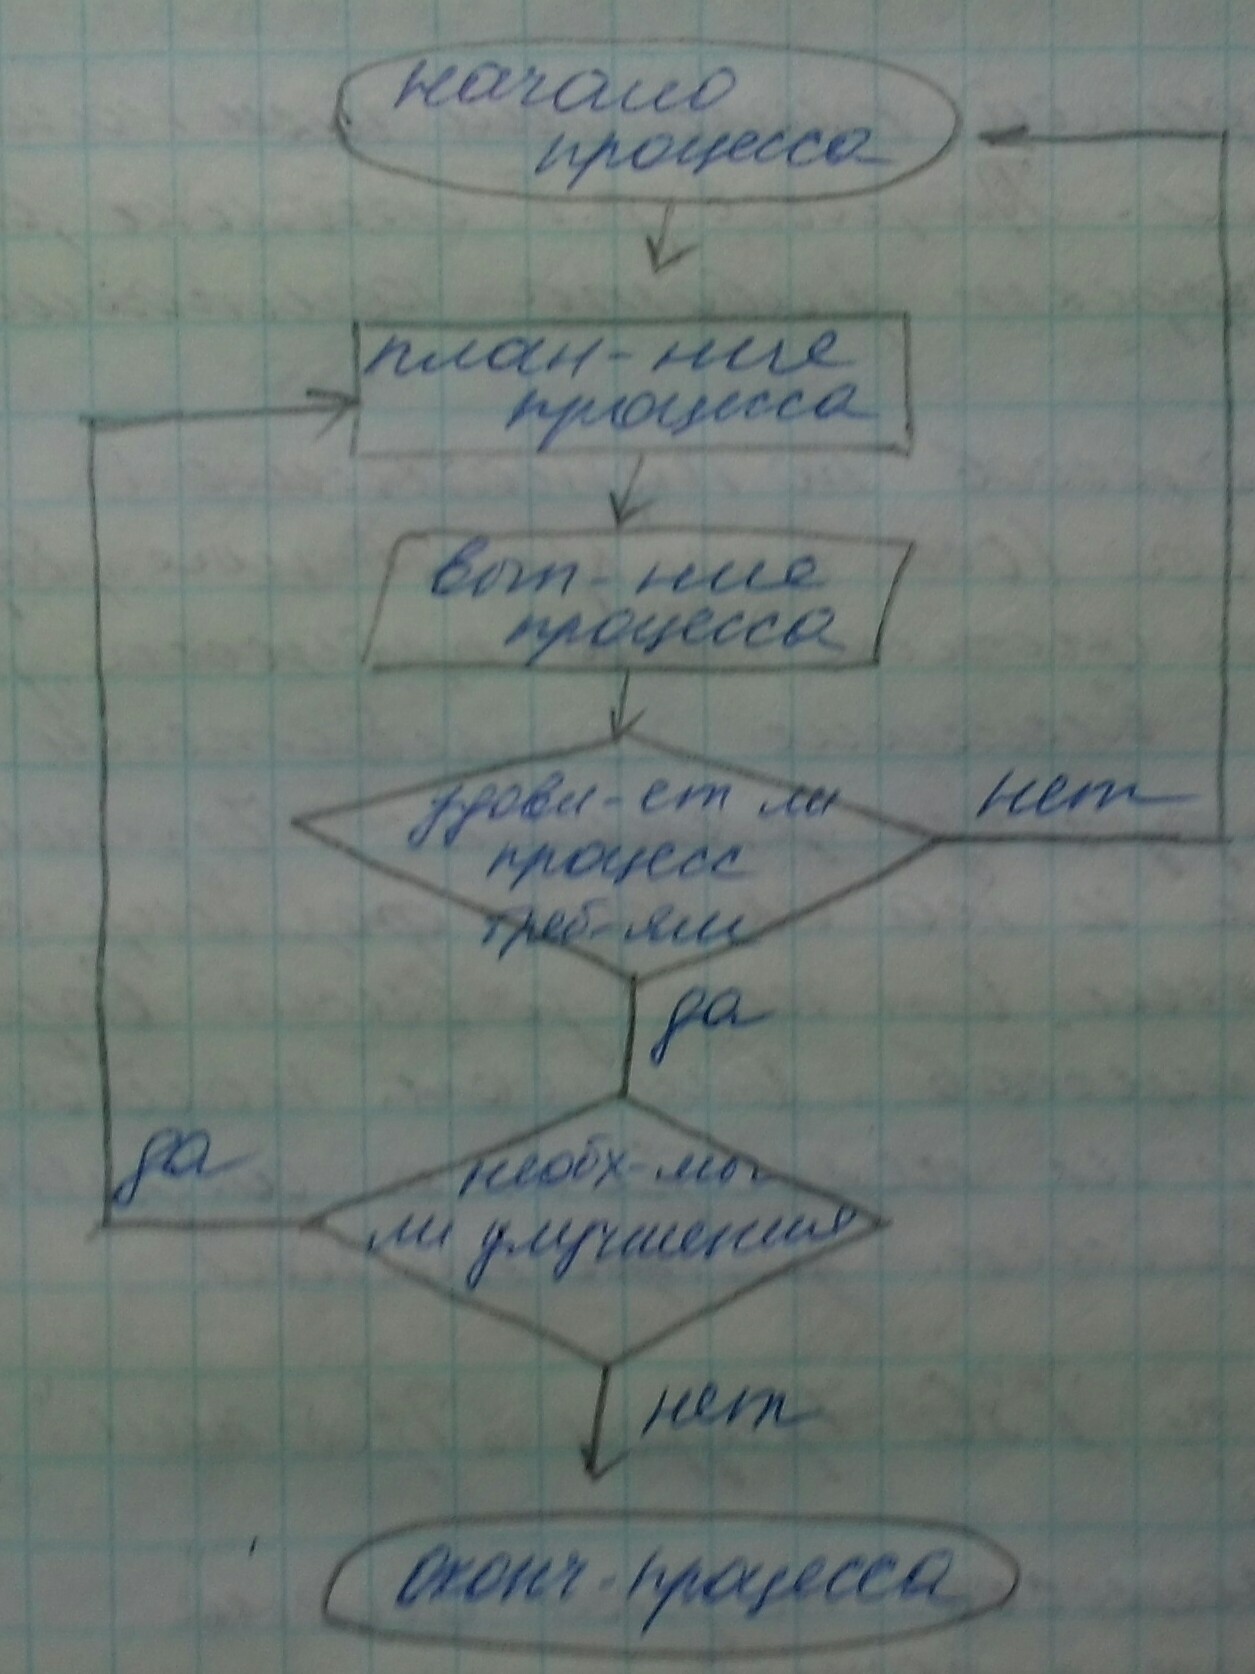 начало
процесса
план-ние
процесса
вып-ние
процесса
удовл-ет ли
процесс
треб-ям
нет
да
необх-мы
да
ли улучшения
нет
оконч-процесса